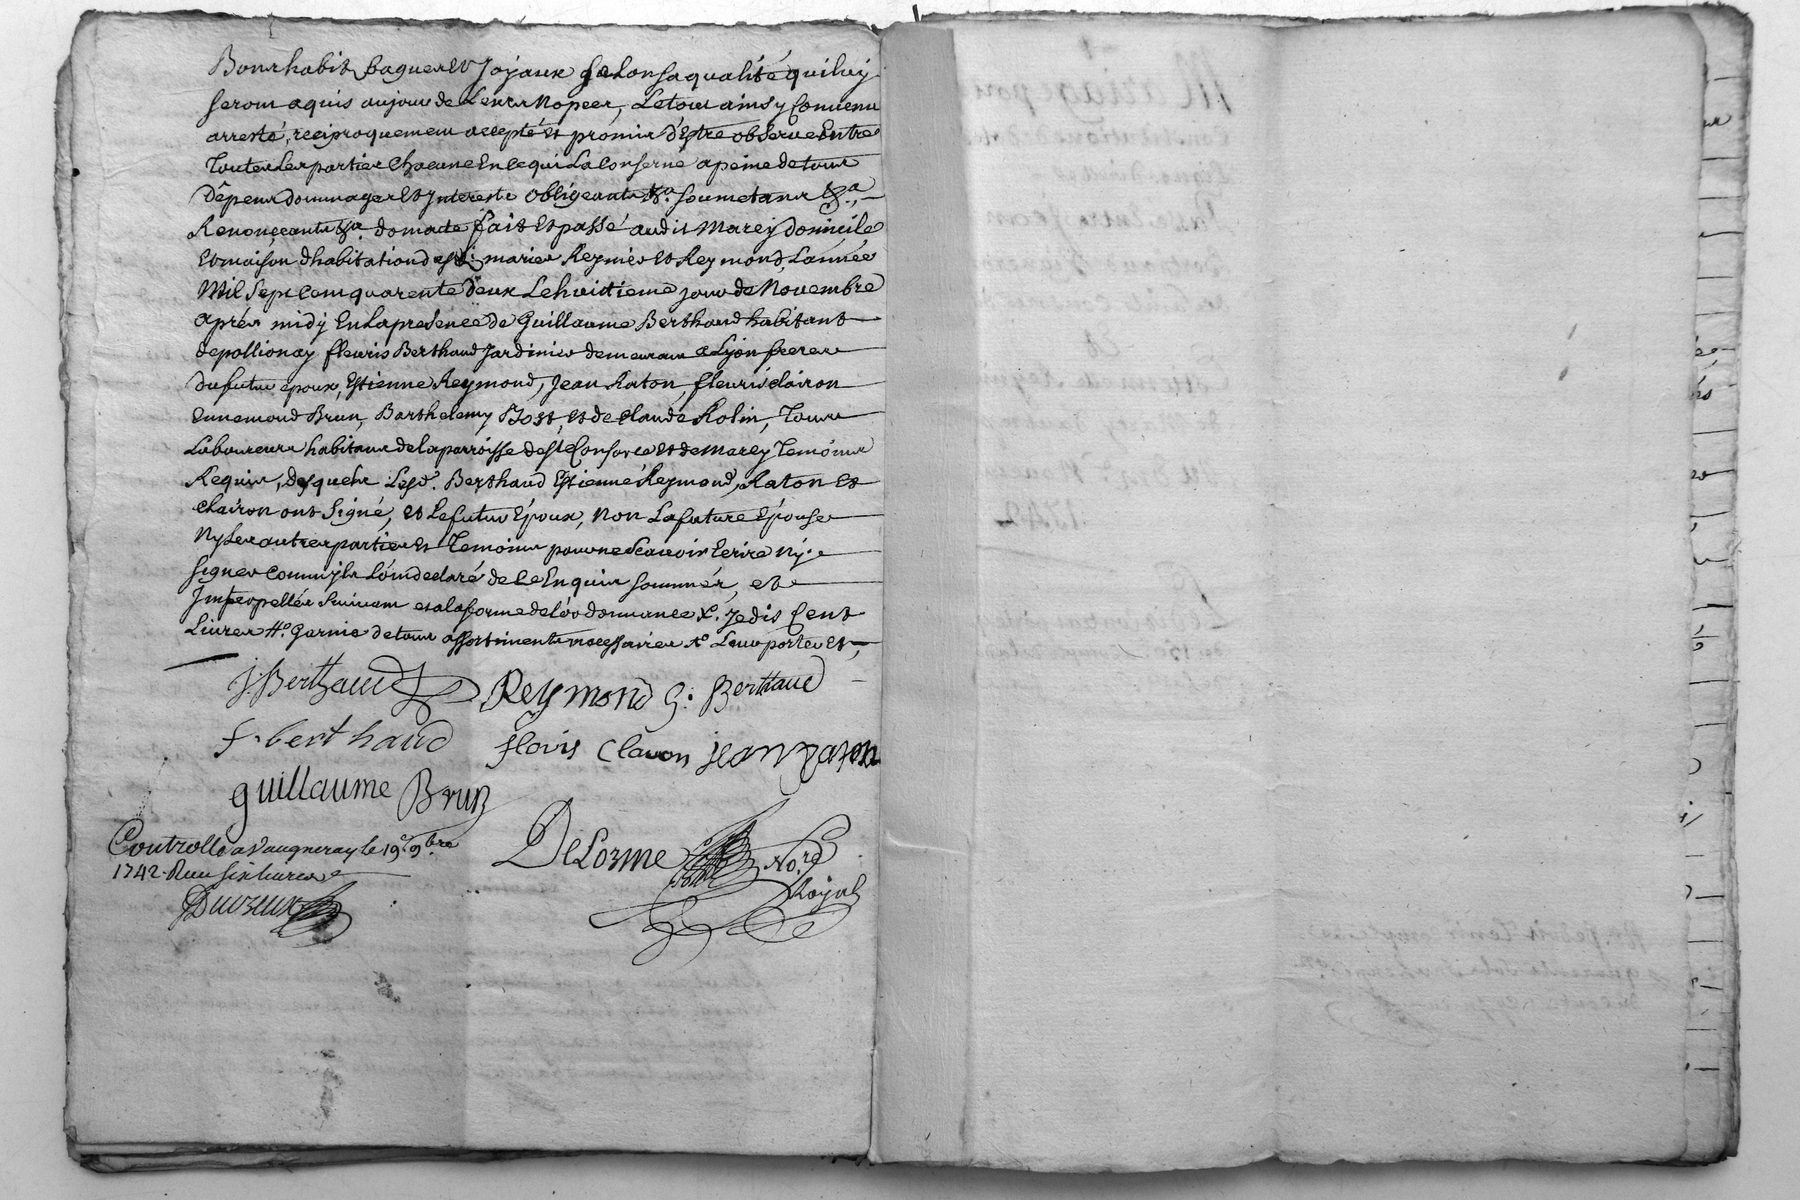 Bons habits bagues et Joyaux selon sa qualité qui luy
seront aquis au jour de Leurs Nopces, Le tout ainsy Convenu
arresté, reciproquement accepté et promis d'Estre observé Entre
Toutes Les parties Chacune En ce qui La Conserne a peine de tous
Dépens dommages Et Interests obligeants &a. soumetans &a.,
Renonçeants &a. dom acte fait Et passé audit Marcy Domicile
Et maison d'habitation desd: mariés Reynier et Reymond, L'année
Mil Sept Cent quarente deux Le huitieme jour de Novembre
après midy En La presence de Guillaume Berthaud habitant
de pollionay fleuris Berthaud Jardinier demeurant a Lyon freres
du futur époux, Estienne Reymond, Jean Raton, fleuris Clairon
Ennemond Brun, Barthelemy Bost, et de Claude Rolin, Tous
Laboureurs habitans de la parroisse de ste Consorce et de Marcy Temoins
Requis, desquels Lesd. Berthaud Estienne Reymond, Raton et
Clairon ont Signé, et Le futur Époux, Non La future Épouse
Ny Les autres parties Et Temoins pour ne Scavoir Ecrire Ny
signer comm'ils L'ont declaré de ce Enquis sommés, et
Interpellés Suivant et a la forme de l'ordonnance X. Je dis Cent
Livres #. Garnie de tous assortiments necessaires #. Leur portes Et
J Berthaud Reymond G: Berthaud
f. berthaud floris Clairon jean raton
guillaume Brun
Controllé a Vaugneray le 19e. 9bre
1742. Reçu six Livres
DeLorme No.re Royal